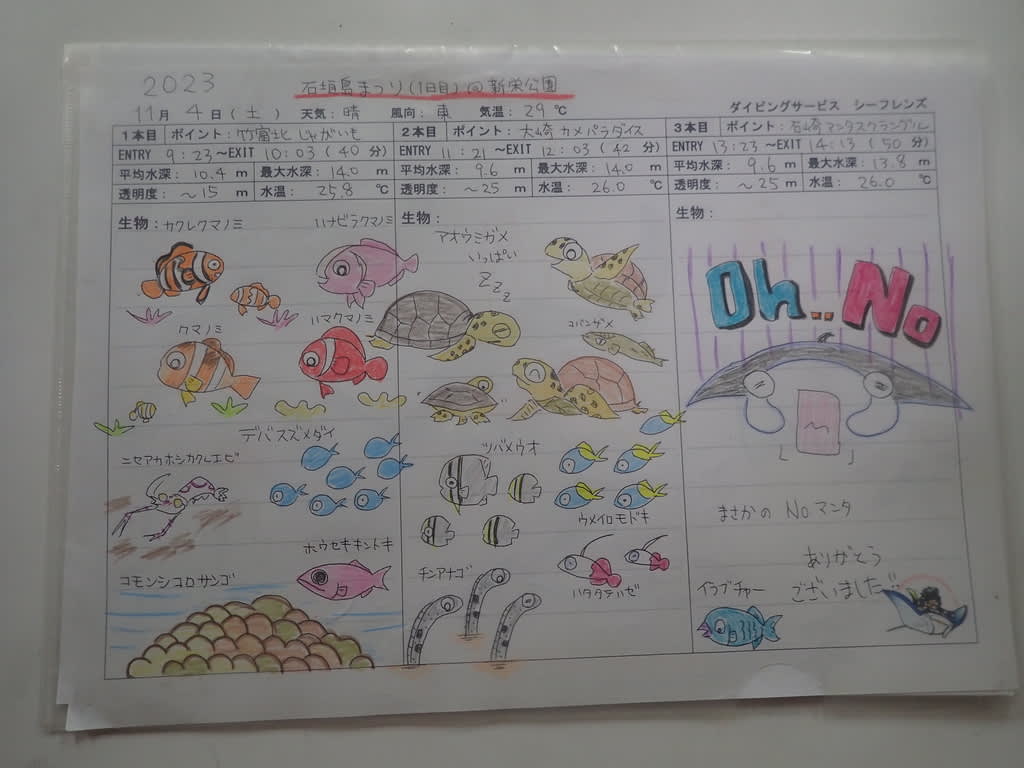 2023 石垣島まつり(1日目)@新栄公園
11月 4日(土) 天気：晴 風向：東 気温：29℃ ダイビングサービス シーフレンズ
1本目 ポイント：竹富北 じゃがいも
ENTRY 9:23～EXIT 10:03 (40 分)
平均水深：10.4 m 最大水深：14.0 m
透明度：～15 m 水温：25.8 ℃
生物：カクレクマノミ ハナビラクマノミ
クマノミ ハマクマノミ
デバスズメダイ
ニセアカホシカクレエビ
ホウセキキントキ
コモンシコロサンゴ
2本目 ポイント：大崎 カメパラダイス
ENTRY 11:21～EXIT 12:03 (42 分)
平均水深：9.6 m 最大水深：14.0 m
透明度：～25 m 水温：26.0 ℃
生物：
アオウミガメ
いっぱい
Z Z Z
コバンザメ
ツバメウオ
ウメイロモドキ
チンアナゴ
ハタタテハゼ
3本目 ポイント：石崎 マンタスクランブル
ENTRY 13:23～EXIT 14:13 (50 分)
平均水深：9.6 m 最大水深：13.8 m
透明度：～25 m 水温：26.0 ℃
生物：
Oh..No
まさかの Noマンタ
ありがとう
ございました!!
イラブチャー